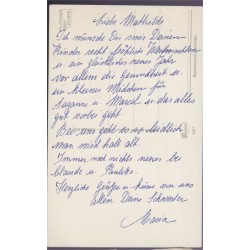 Liebe Mathilde
Ich wünsche Dir sowie Deinen
Kinder recht fröhliche Weihnachten
u ein glückliches neues Jahr
vor allem die Gesundheit u
ein kleines Mädchen für
Suzann u Marcel u das alles
gut vorbei geht
Bei uns geht es so leidlich
man wird halt alt.
Immer noch nichts neues bei
Claude u
Herzliche Grüsse u küsse von uns
allen Deine Schwester
Maria